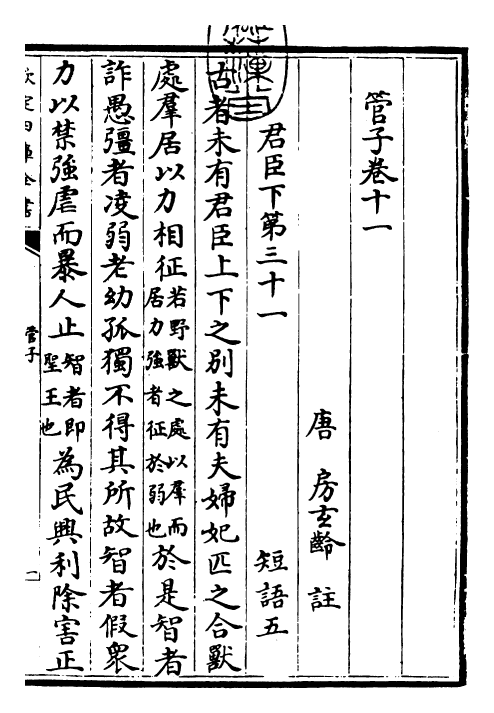 管子卷十一
唐 房玄齡 註
君臣下第三十一 短語五
古者未有君臣上下之別未有夫婦妃匹之合獸
處羣居以力相征若野獸之處以羣而居力強者征於弱也於是智者
詐愚彊者凌弱老幼孤獨不得其所故智者假衆
力以禁強虐而暴人止智者即聖王也為民興利除害正
欽定四庫全書
管子
一